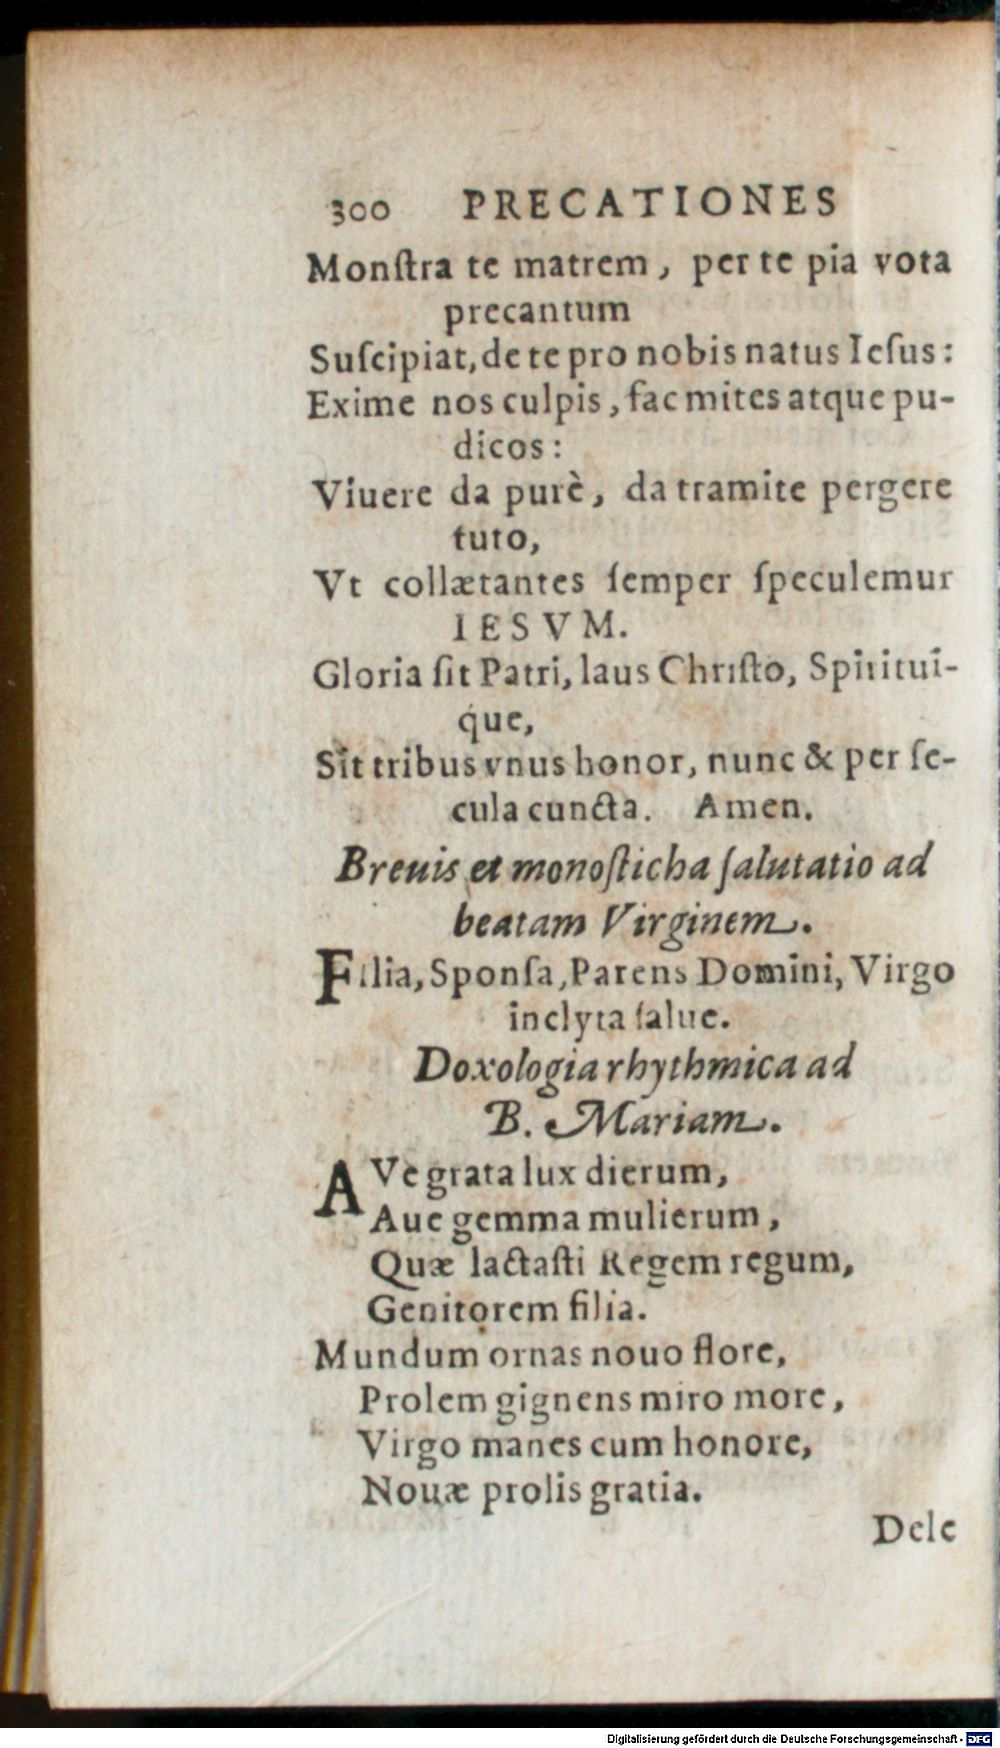 300 PRECATIONES
Monſtra te matrem, per te pia vota
precantum
Suſcipiat, de te pro nobis natus Ieſus:
Exime nos culpis, fac mites atque pu-
dicos:
Viuere da purè, da tramite pergere
tuto,
Vt collætantes ſemper ſpeculemur
IESVM.
Gloria ſit Patri, laus Chriſto, Spiritui-
que,
Sit tribus vnus honor, nunc & per ſe-
cula cuncta. Amen.
Breuis et monoſticha ſalutatio ad
beatam Virginem.
Filia, Sponſa, Parens Domini, Virgo
inclyta ſalue.
Doxologia rhythmica ad
B. Mariam.
AVe grata lux dierum,
Aue gemma mulierum,
Quæ lactaſti Regem regum,
Genitorem filia.
Mundum ornas nouo flore,
Prolem gignens miro more,
Virgo manes cum honore,
Nouæ prolis gratia.
Dele
Digitalisierung gefördert durch die Deutsche Forschungsgemeinschaft - DFG